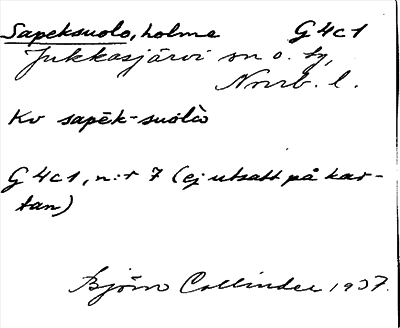 Sapeksuolo, holme G4c1
Jukkasjärvi sn o. tg,
Norrb. l.
Kv sapēk-suolò
G4c1, n:r 7 (ej utsatt på kar-
tan)
Björn Collinder 1937.